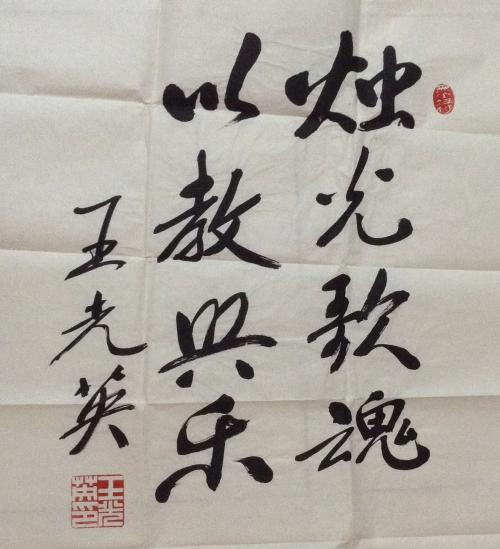 烛光歌魂
以教兴乐
王光英
王光英印